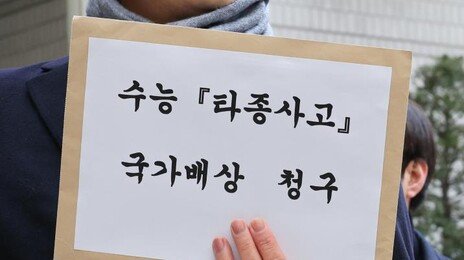 수능 『타종사고』
국가배상 청구